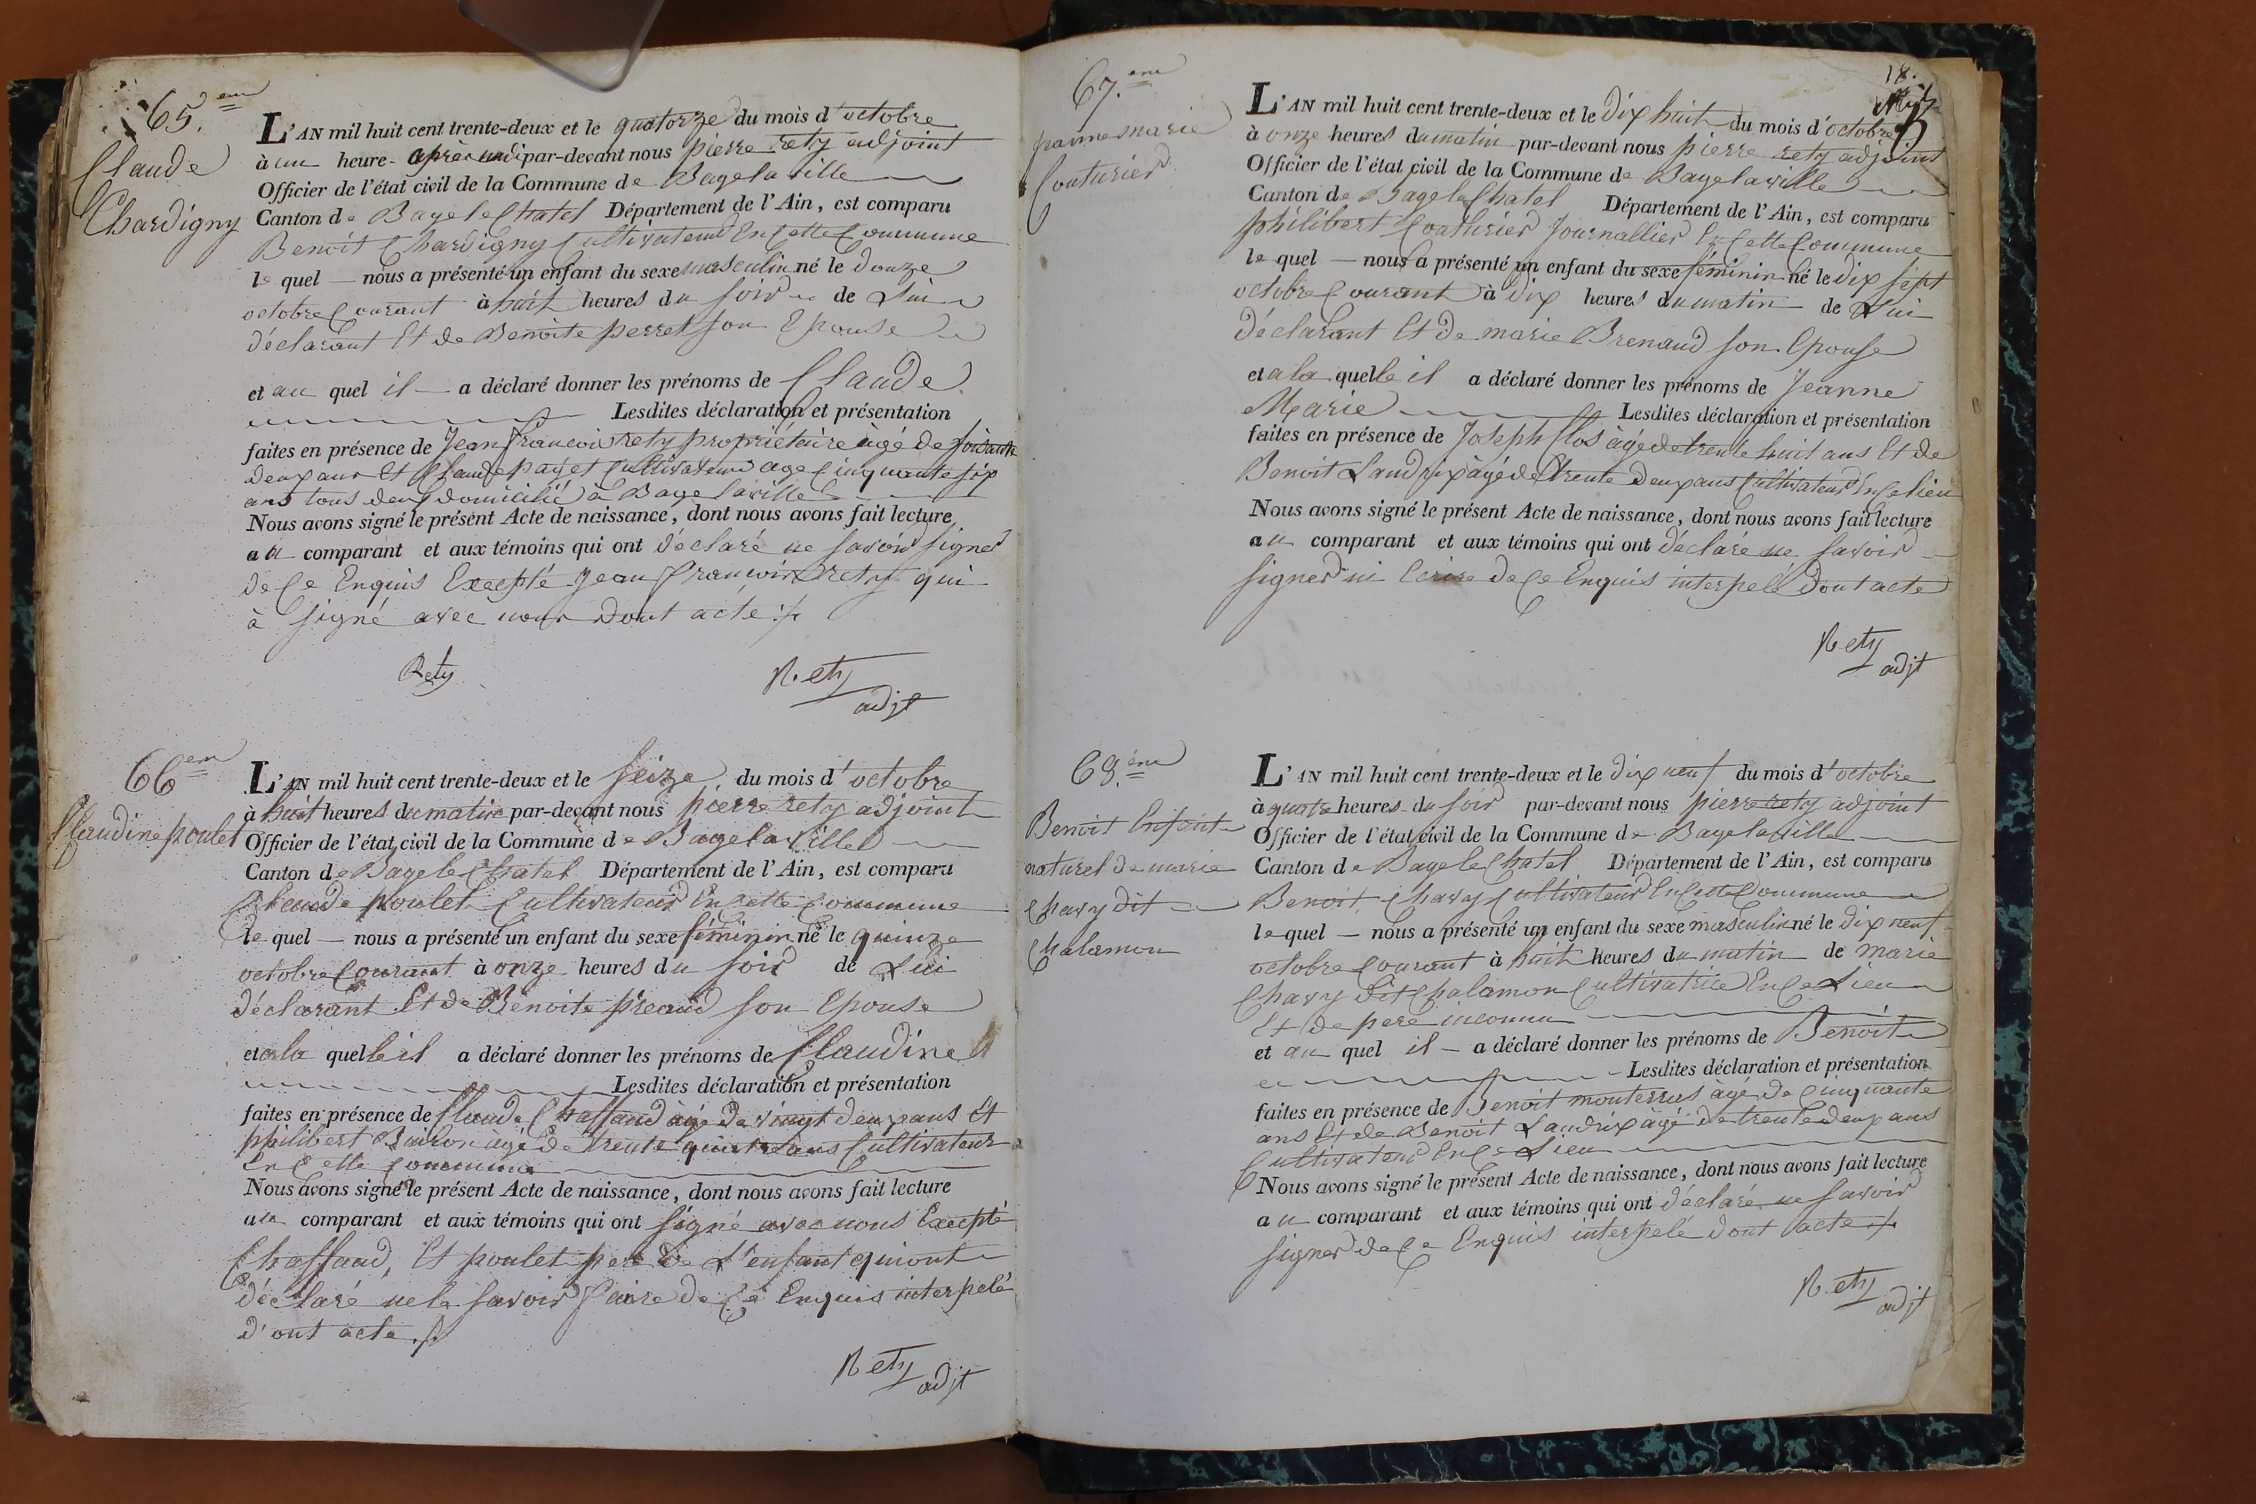 65.em
Claude
Chardigny
L'AN mil huit cent trente-deux et le quatorze du mois d'octobre
à un heure après midi par-devant nous pierre rety adjoint
Officier de l'état civil de la Commune de Bagelaville
Canton de Bagelechatel Département de l'Ain, est comparu
Benoit Chardigny Cultivateur En Cette Commune
lequel nous a présenté un enfant du sexe masculin né le douze
octobre Courant à huit heures du soir de Lui
déclarant Et de Benoite perret son Epouse
et au quel il a déclaré donner les prénoms de Claude
Lesdites déclaration et présentation
faites en présence de Jean francois rety propriétaire àgé de soixante
deux ans et Claude payet Cultivateur age Cinquante six
ans tous deux domicilié à Bagelaville
Nous avons signé le présent Acte de naissance, dont nous avons fait lecture
au comparant et aux témoins qui ont déclaré ne savoir signer
de Ce Enquis Excepté Jean francois rety qui
à signé avec nous dont acte
Rety
Rety
adjt
66em
Claudine poulet
L'AN mil huit cent trente-deux et le seize du mois d'octobre
à huit heures du matin par-devant nous pierre rety adjoint
Officier de l'état civil de la Commune de Bagelaville
Canton de Bagelechatel Département de l'Ain, est comparu
Claude poulet Cultivateur En Cette Commune
lequel nous a présenté un enfant du sexe féminin né le quinze
octobre Courant à onze heures du soir de Lui
déclarant Et de Benoite preaud son Epouse
et a la quelle il a déclaré donner les prénoms de Claudine
Lesdites déclaration et présentation
faites en présence de Claude Chaffaud àgé de vingt deux ans Et
philibert Buiron àgé de trente quatre ans Cultivateur
En Cette Commune
Nous avons signé le présent Acte de naissance, dont nous avons fait lecture
au comparant et aux témoins qui ont signé avec nous Excepté
Chaffaud, Et poulet pere de L'enfant qui ont
déclaré ne le savoir faire de Ce Enquis interpelé
d'ont acte
Rety
adjt
18.
67.eme
jeanne marie
Couturier
L'AN mil huit cent trente-deux et le dix huit du mois d'octobre
à onze heures du matin par-devant nous pierre rety adjoint
Officier de l'état civil de la Commune de Bagelaville
Canton de Bagelechatel Département de l'Ain, est comparu
philibert Couturier Journallier En Cette Commune
lequel nous a présenté un enfant du sexe féminin né le dix sept
octobre Courant à dix heures du matin de Lui
déclarant Et de marie Brenaud son Epouse
et a la quelle il a déclaré donner les prénoms de Jeanne
Marie Lesdites déclaration et présentation
faites en présence de Joseph Clos àgé de trente huit ans Et de
Benoit Landrix àgé de trente deux ans Cultivateur En Ce lieu
Nous avons signé le présent Acte de naissance, dont nous avons fait lecture
au comparant et aux témoins qui ont déclaré ne savoir
signer ni Ecrire de Ce Enquis interpelé dont acte
Rety
adjt
69.éme
Benoit Enfant
naturel de marie
Chavy dit
Chalamon
L'AN mil huit cent trente-deux et le dix neuf du mois d'octobre
à quatre heures du soir par-devant nous pierre rety adjoint
Officier de l'état civil de la Commune de Bagelaville
Canton de Bagelechatel Département de l'Ain, est comparu
Benoit Chavy Cultivateur En Cette Commune
lequel nous a présenté un enfant du sexe masculin né le dix neuf
octobre Courant à huit heures du matin de marie
Chavy dit Chalamon Cultivatrice En Ce Lieu
Et de pere inconnu
et au quel il a déclaré donner les prénoms de Benoit
Lesdites déclaration et présentation
faites en présence de Benoit monterras àgé de Cinquante
ans Et de Benoit Landrix àgé de trente deux ans
Cultivateur En Ce Lieu
Nous avons signé le présent Acte de naissance, dont nous avons fait lecture
au comparant et aux témoins qui ont déclaré ne savoir
signer de Ce Enquis interpelé dont acte
Rety
adjt